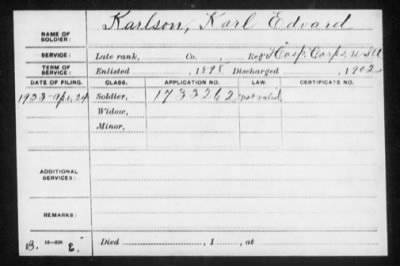 NAME OF SOLDIER: Karlson, Karl Edvard
SERVICE: Late rank, Co. , Reg't Hosp. Corps, U.S.A
TERM OF SERVICE: Enlisted , 1898 Discharged , 1902
DATE OF FILING. CLASS. APPLICATION NO. LAW. CERTIFICATE NO.
1933-Apr. 24 Soldier, 1733262 not valid
Widow,
Minor,
ADDITIONAL SERVICES:
REMARKS:
B. E. Died , 1 , at